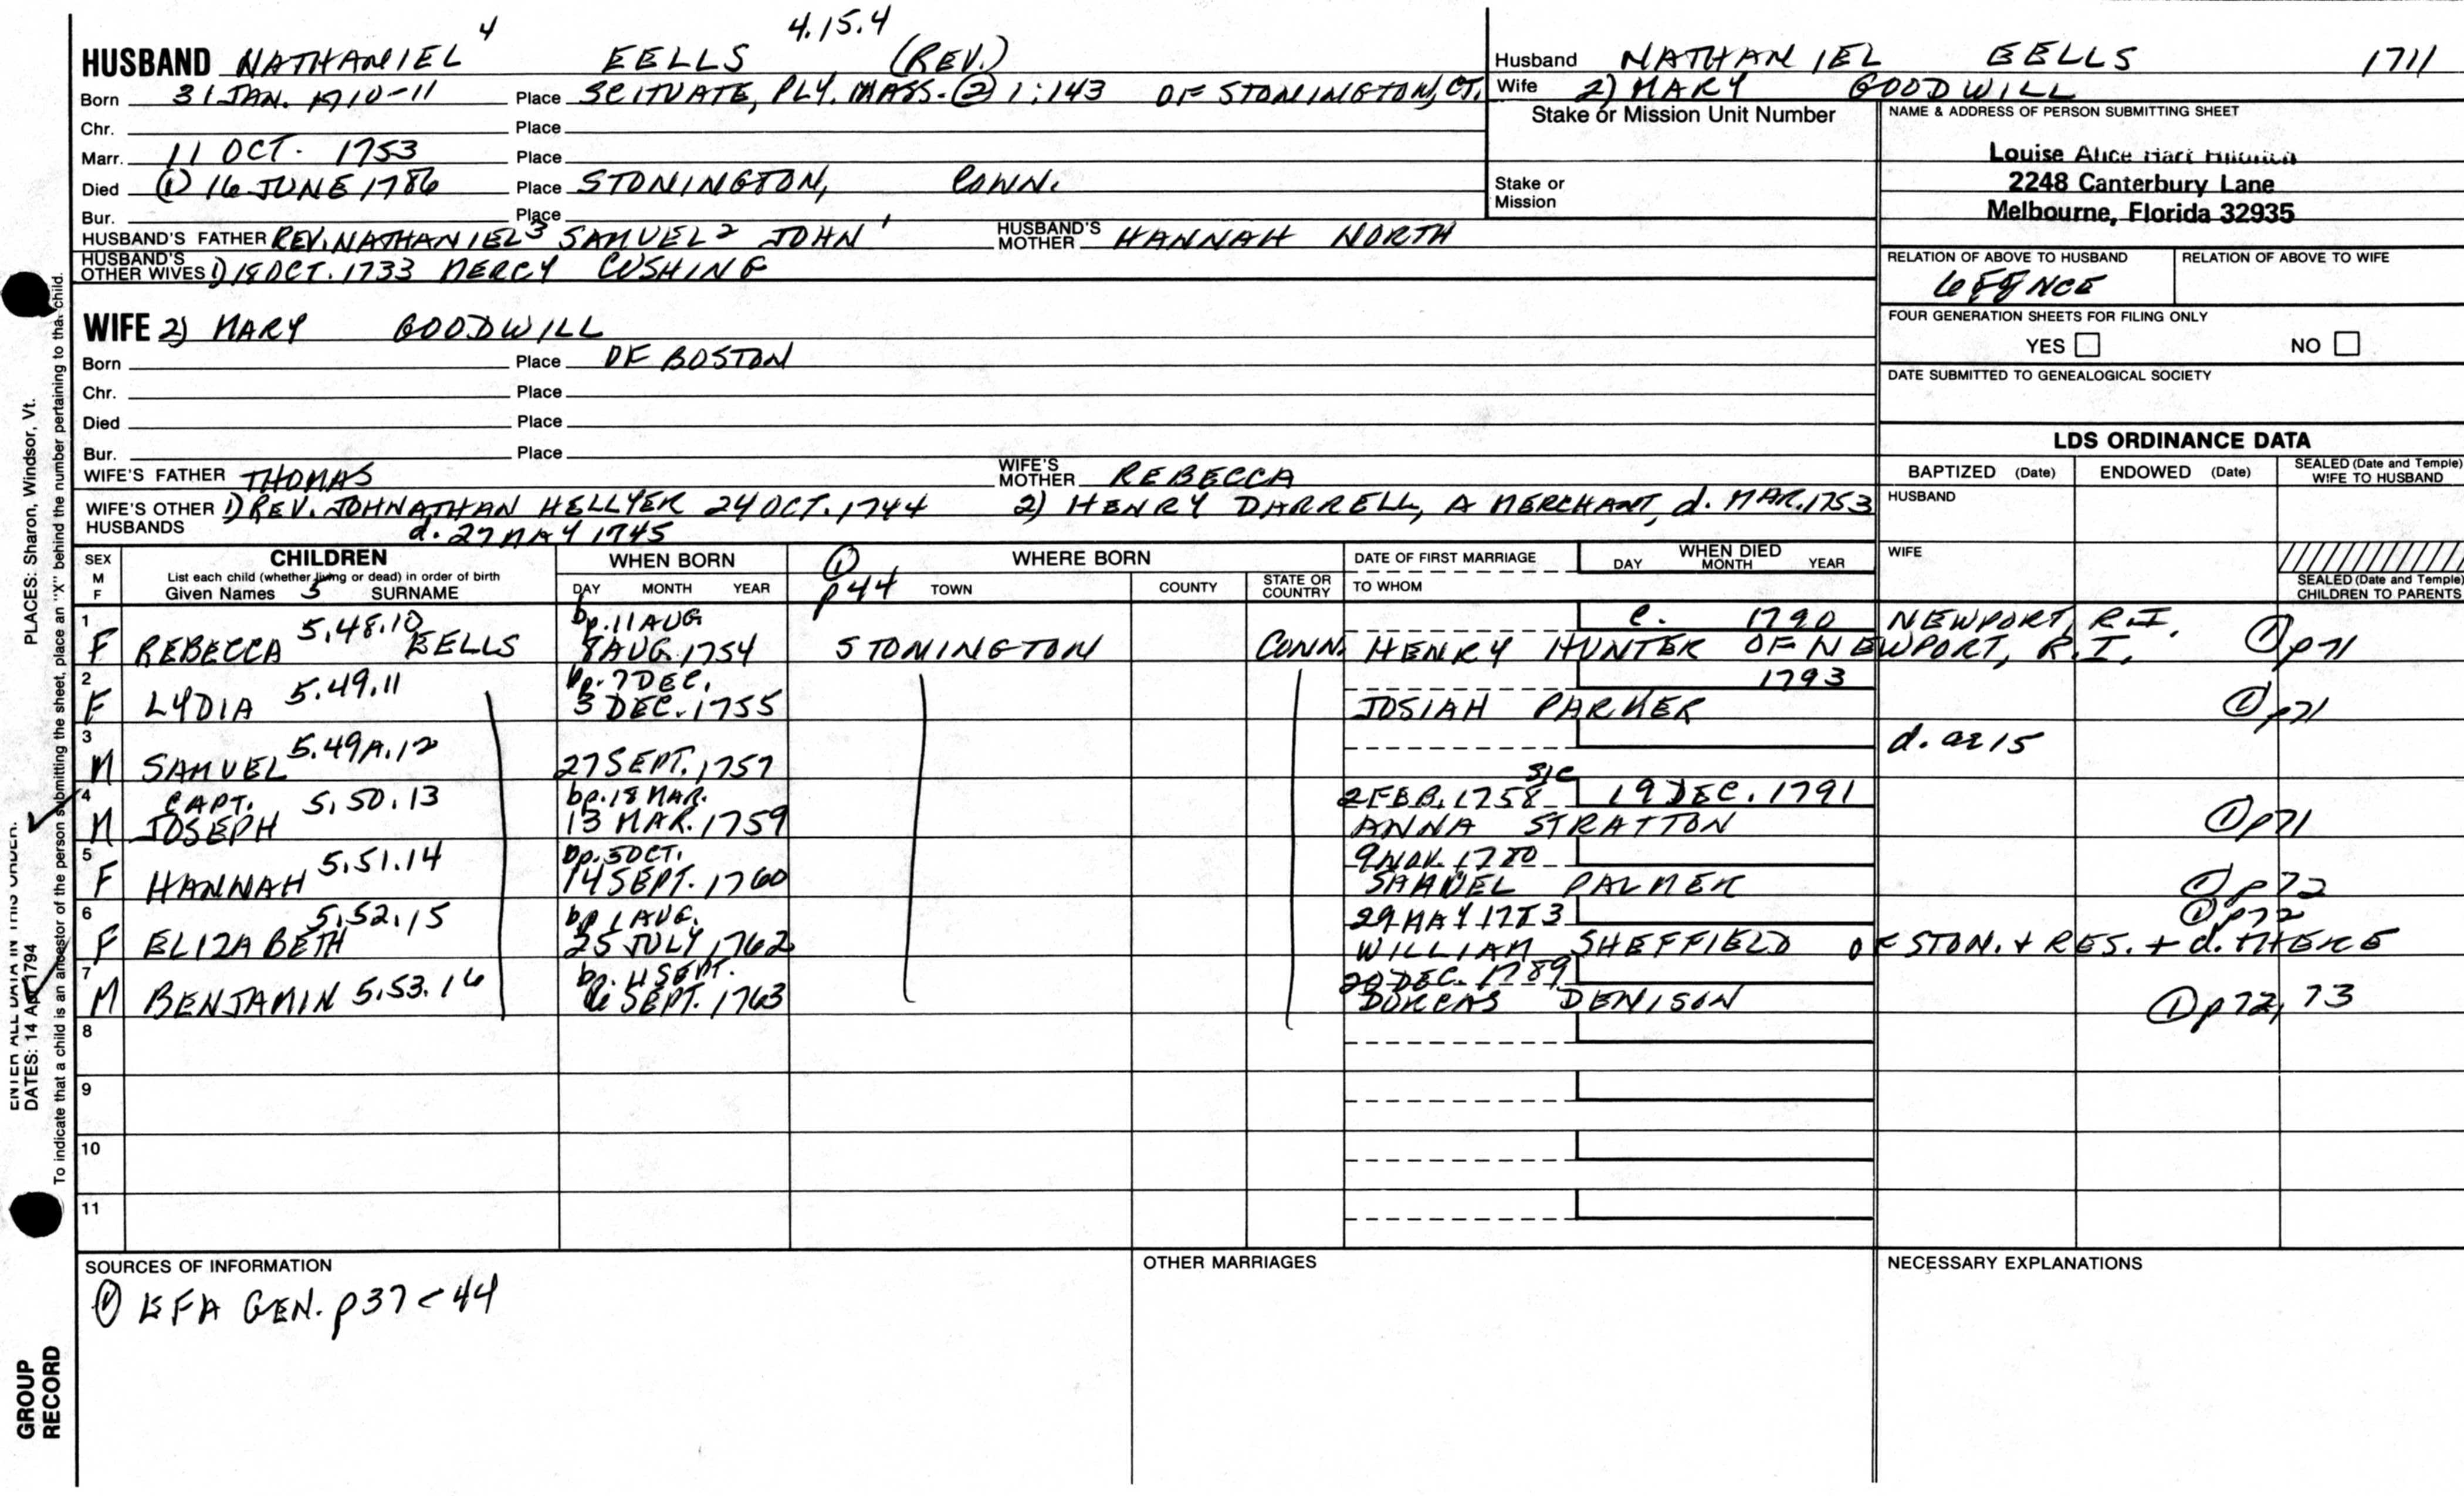 4 4.15.4
HUSBAND NATHANIEL EELLS (REV.)
Born 31 JAN. 1710-11 Place SCITUATE, PLY. MASS. ② 1:143 OF STONINGTON, CT.
Chr. Place
Marr. 11 OCT. 1753 Place
Died ① 16 JUNE 1786 Place STONINGTON, CONN.
Bur. Place
HUSBAND'S FATHER REV. NATHANIEL 3 SAMUEL 2 JOHN 1 HUSBAND'S MOTHER HANNAH NORTH
HUSBAND'S OTHER WIVES 1) 18 OCT. 1733 MERCY CUSHING
WIFE 2) MARY GOODWILL
Born Place OF BOSTON
Chr. Place
Died Place
Bur. Place
WIFE'S FATHER THOMAS WIFE'S MOTHER REBECCA
WIFE'S OTHER HUSBANDS 1) REV. JOHNATHAN HELLYER 24 OCT. 1744 2) HENRY DARRELL, A MERCHANT, d. MAR. 1753
d. 27 MAY 1745
Husband NATHANIEL EELLS 1711
Wife 2) MARY GOODWILL
Stake or Mission Unit Number
Stake or
Mission
NAME & ADDRESS OF PERSON SUBMITTING SHEET
Louise Alice Hart
2248 Canterbury Lane
Melbourne, Florida 32935
RELATION OF ABOVE TO HUSBAND RELATION OF ABOVE TO WIFE
FOUR GENERATION SHEETS FOR FILING ONLY
YES NO
DATE SUBMITTED TO GENEALOGICAL SOCIETY
LDS ORDINANCE DATA
BAPTIZED (Date) ENDOWED (Date) SEALED (Date and Temple) WIFE TO HUSBAND
HUSBAND
WIFE
SEALED (Date and Temple) CHILDREN TO PARENTS
SEX M F
CHILDREN
List each child (whether living or dead) in order of birth
Given Names 5 SURNAME
WHEN BORN
DAY MONTH YEAR
① p44 WHERE BORN
TOWN COUNTY STATE OR COUNTRY
DATE OF FIRST MARRIAGE
TO WHOM
WHEN DIED
DAY MONTH YEAR
1 5.48.10 bp. 11 AUG c. 1790 NEWPORT, R.I.
F REBECCA EELLS 8 AUG. 1754 STONINGTON CONN. HENRY HUNTER OF NEWPORT, R.I. ① p71
2 5.49.11 bp. 7 DEC. 1793
F LYDIA 3 DEC. 1755 JOSIAH PARKER ① p71
3 5.49A.12 d. ae 15
M SAMUEL 27 SEPT. 1757
4 CAPT. 5.50.13 bp. 18 MAR. 2 FEB. 1758 sic 19 DEC. 1791
M JOSEPH 13 MAR. 1759 ANNA STRATTON ① p71
5 5.51.14 bp. 5 OCT. 9 NOV. 1780
F HANNAH 14 SEPT. 1760 SAMUEL PALMER ① p72
6 5.52.15 bp 1 AUG. 29 MAY 1783 ① p72
F ELIZABETH 25 JULY 1762 WILLIAM SHEFFIELD OF STON. + RES. + d. THERE
7 bp. 11 SEPT. 20 DEC. 1789
M BENJAMIN 5.53.16 6 SEPT. 1763 DORCAS DENISON ① p72, 73
8
9
10
11
SOURCES OF INFORMATION
① EFA GEN. p37-44
OTHER MARRIAGES
NECESSARY EXPLANATIONS
ENTER ALL DATA IN THIS ORDER:
DATES: 14 Apr 1794 PLACES: Sharon, Windsor, Vt.
To indicate that a child is an ancestor of the person submitting the sheet, place an "X" behind the number pertaining to that child.
GROUP
RECORD